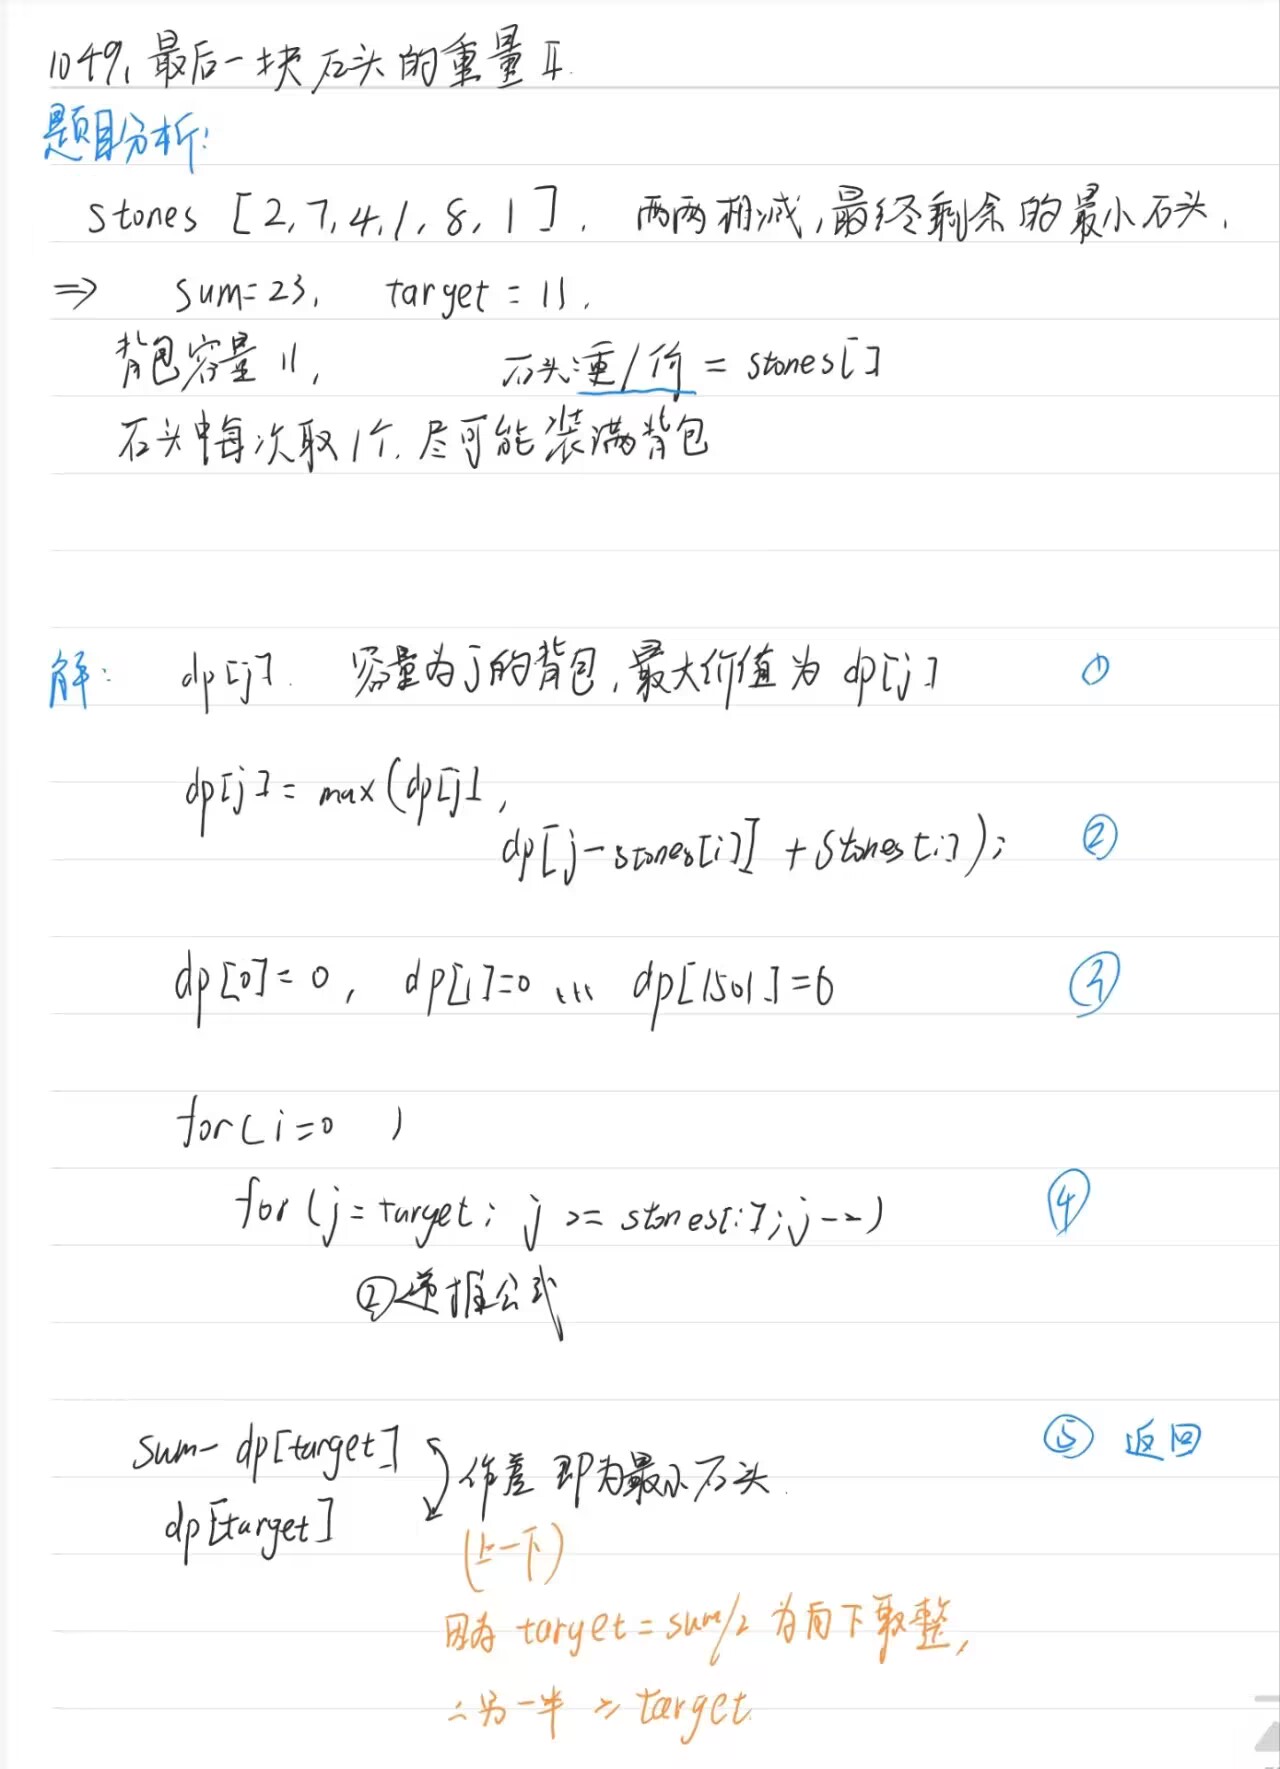 1049、最后一块石头的重量 II.
题目分析:
stones [2,7,4,1,8,1]. 两两相减,最终剩余的最小石头.
=> sum=23, target=11.
背包容量11, 石头:重/价 = stones[]
石头中每次取1个.尽可能装满背包
解: dp[j]. 容量为j的背包,最大价值为 dp[j] ①
dp[j]=max(dp[j],
dp[j-stones[i]]+stones[i]); ②
dp[0]=0, dp[1]=0 ... dp[1501]=0 ③
for(i=0 )
for(j=target; j>=stones[i];j--) ④
②递推公式
sum-dp[target] ⑤ 返回
作差即为最小石头.
dp[target]
(上一下)
因为 target=sum/2 为向下取整,
∴另一半 ≥ target